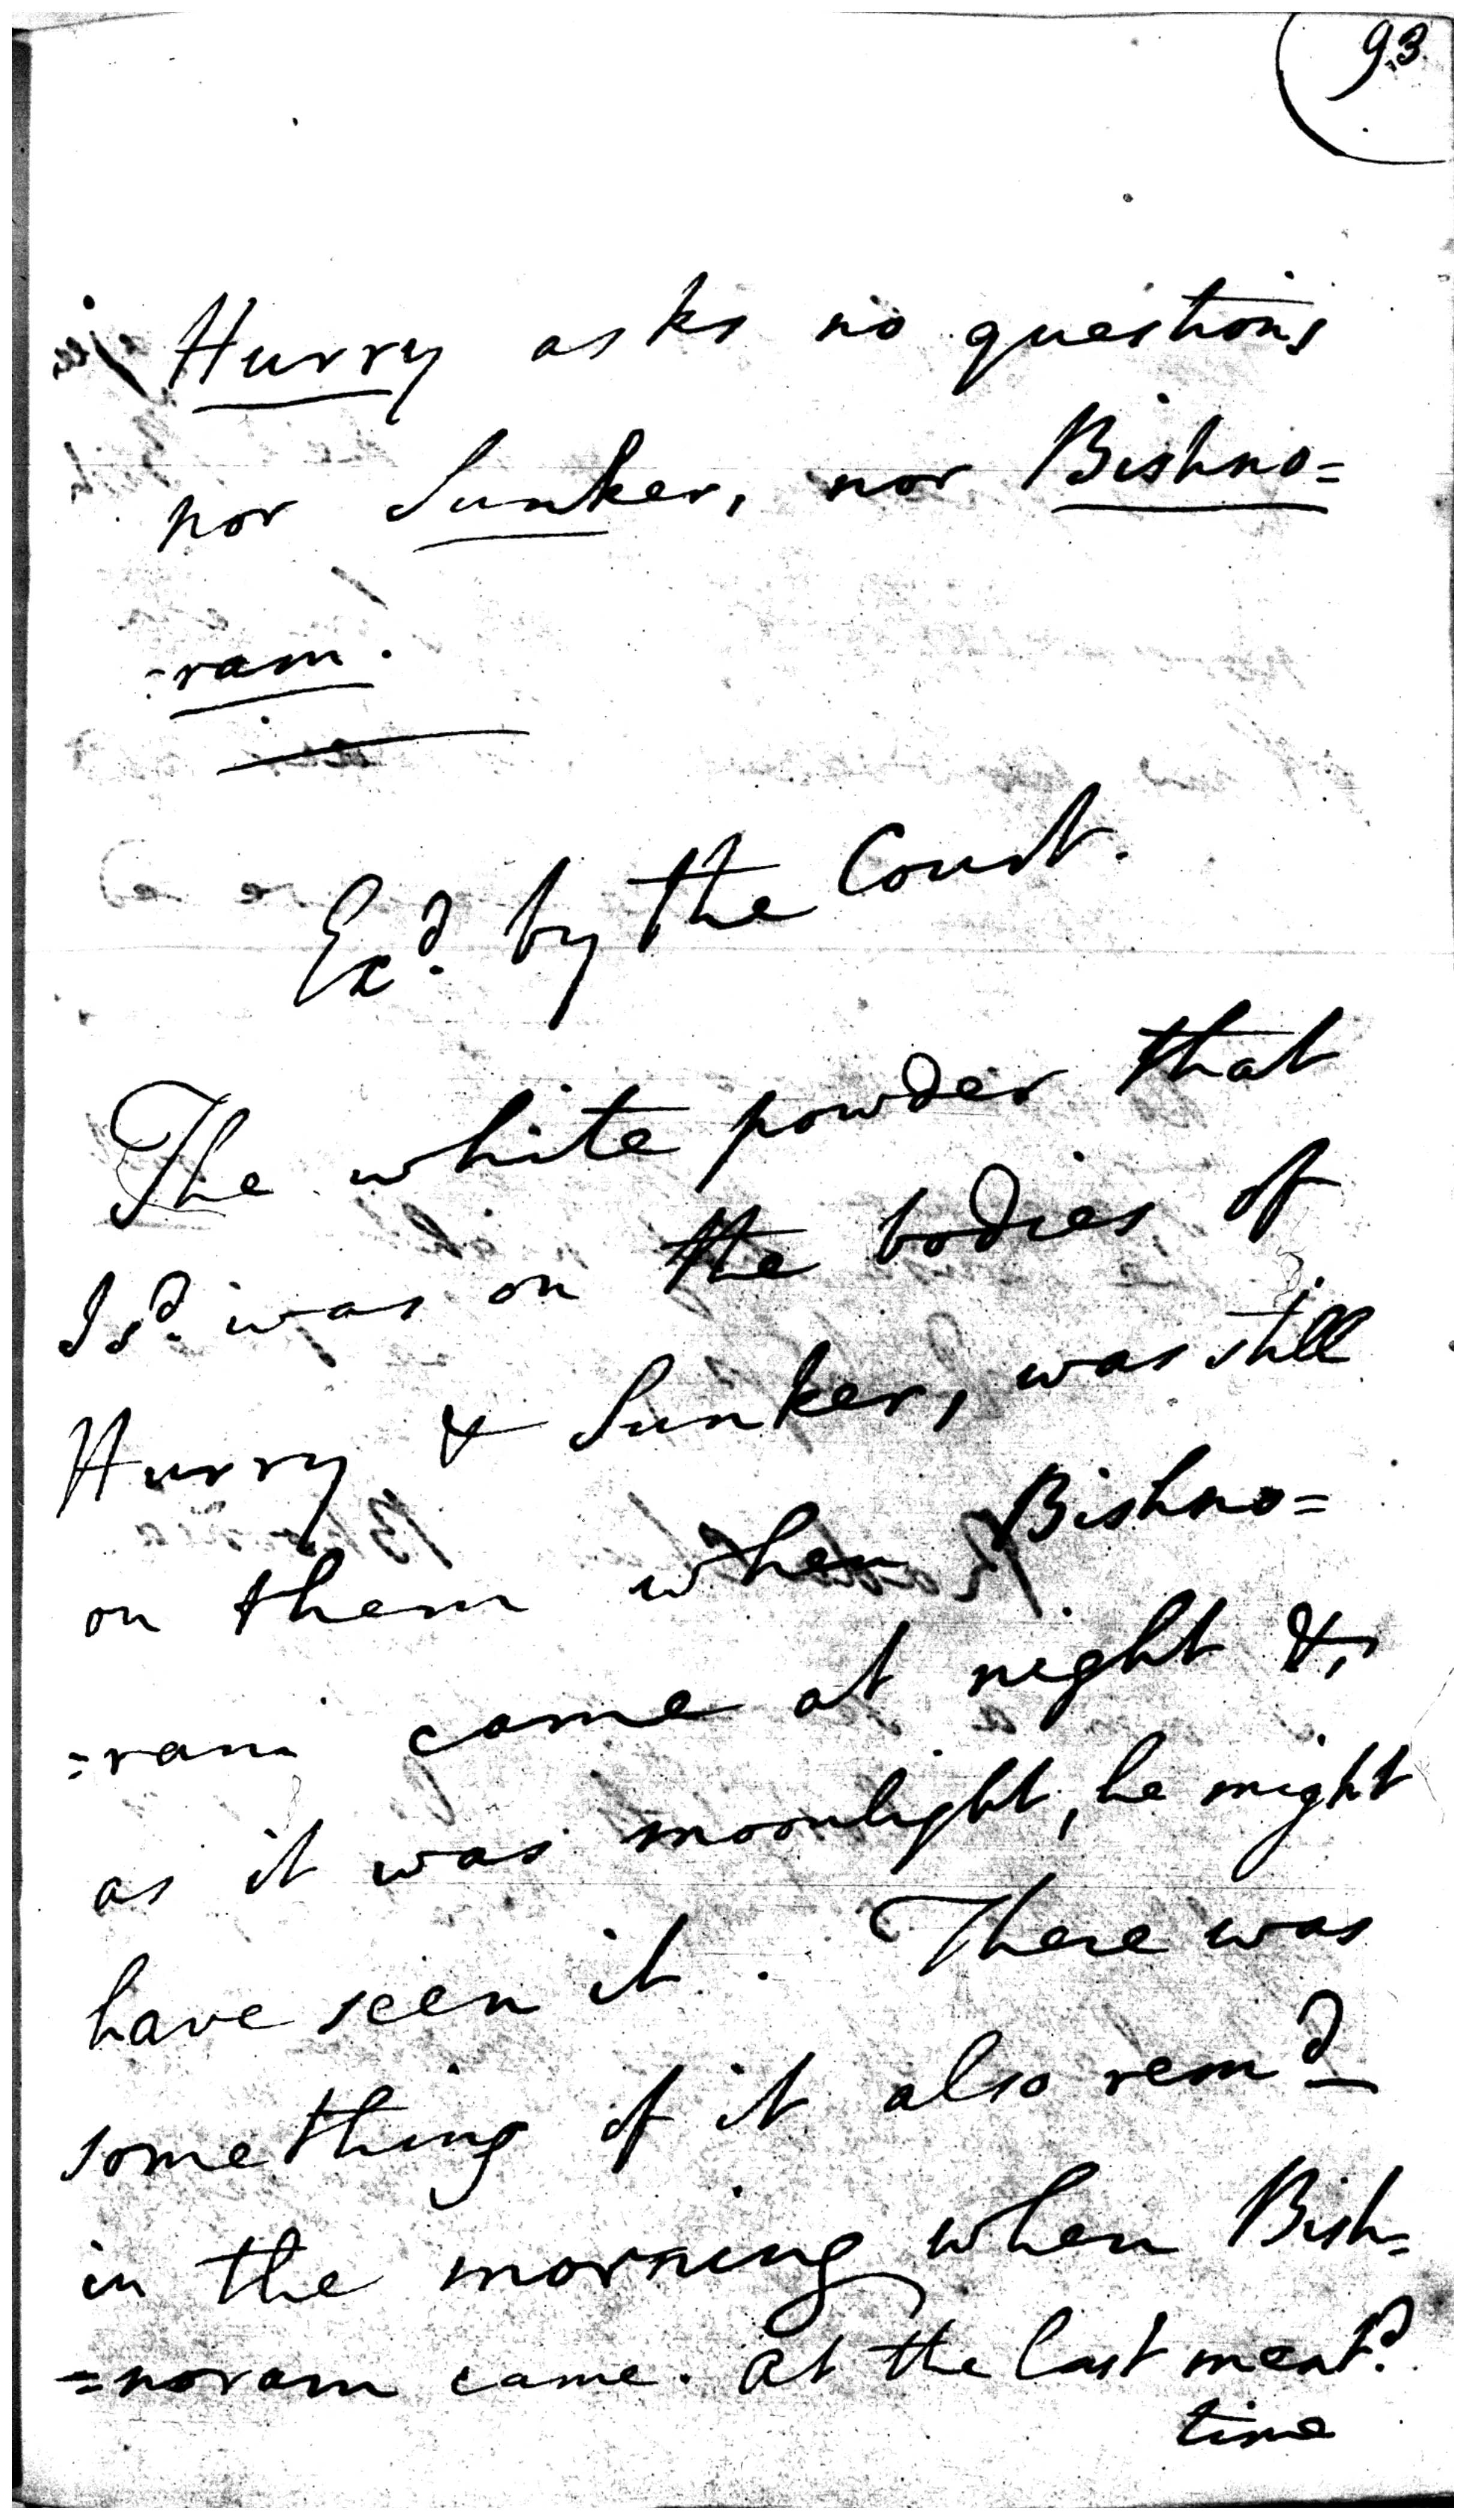 93
Hurry asks no questions
nor Sunker, nor Bishno=
=ram.
Exd. by the Court.
The white powder that
I sd. was on the bodies of
Hurry & Sunker, was still
on them when Bishno=
=ram came at night &,
as it was moonlight, he might
have seen it. There was
something of it also remd
in the morning when Bish=
=noram came. At the last ment.d
time